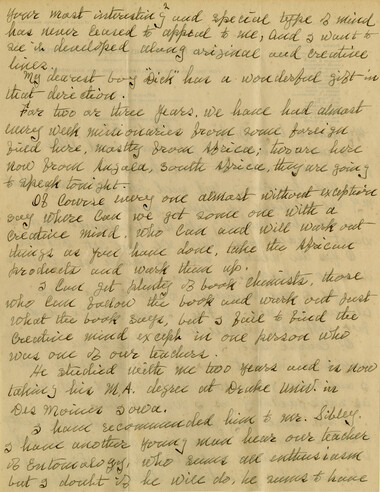 Your most interesting and special type of mind
has never ceased to appeal to me, and I want to
see it developed along original and creative
lines.
My dearest boy "Dick" has a wonderful gift in
that direction.
For two or three years, we have had almost
every week missionaries from some foreign
field here, mostly from Africa; two are here
now from Angola, South Africa, they are going
to speak tonight.
Of course every one almost without exception
say where can we get some one with a
creative mind. who can and will work out
things as you have done, take the African
products and work them up.
I can get plenty of book chemists, those
who can follow the book and work out just
what the book says, but I fail to find the
creative mind except in one person who
was one of our teachers.
He studied with me two years and is now
taking his M.A. degree at Drake Univ. in
Des Moines Iowa.
I have recommended him to Mr. Sibley.
I have another young man hear our teacher
of Entomology, who seems all enthusiasm
but I doubt if he will do, he seems to have